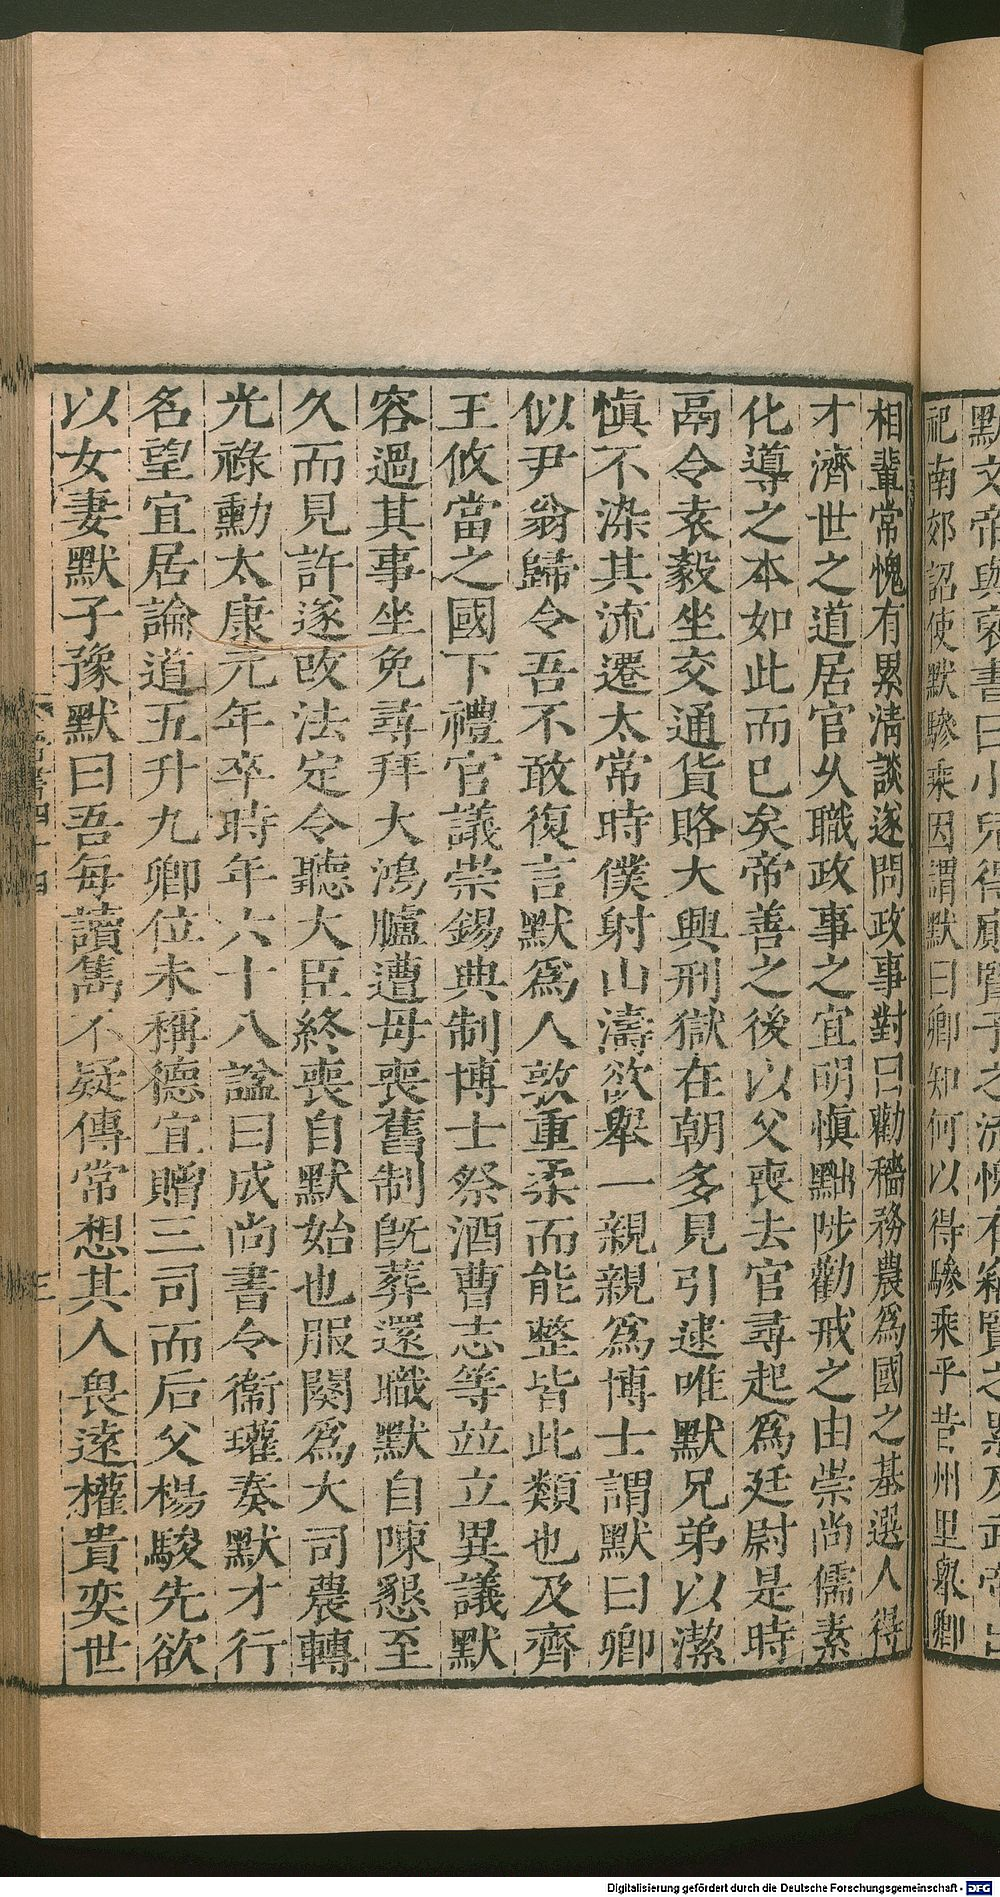 默文帝與袤書曰小兒得廁賢子之流愧有竊賢之累及武帝出
祀南郊詔使默驂乘因謂默曰卿知何以得驂乘乎昔州里舉卿
相輩常愧有累清談遂問政事對曰勸穡務農爲國之基選人得
才濟世之道居官乆職政事之宜明慎黜陟勸戒之由崇尚儒素
化導之本如此而已矣帝善之後以父喪去官尋起爲廷尉是時
鬲令袁毅坐交通貨賂大興刑獄在朝多見引逮唯默兄弟以潔
慎不染其流遷太常時僕射山濤欲舉一親親爲博士謂默曰卿
似尹翁歸令吾不敢復言默爲人敦重柔而能整皆此類也及齊
王攸當之國下禮官議崇錫典制博士祭酒曹志等竝立異議默
容過其事坐免尋拜大鴻臚遭母喪舊制旣葬還職默自陳懇至
久而見許遂改法定令聽大臣終喪自默始也服闋爲大司農轉
光祿勳太康元年卒時年六十八諡曰成尚書令衞瓘奏默才行
名望宜居論道五升九卿位未稱德宜贈三司而后父楊駿先欲
以女妻默子豫默曰吾每讀雋不疑傳常想其人畏遠權貴奕世
三
Digitalisierung gefördert durch die Deutsche Forschungsgemeinschaft - DFG